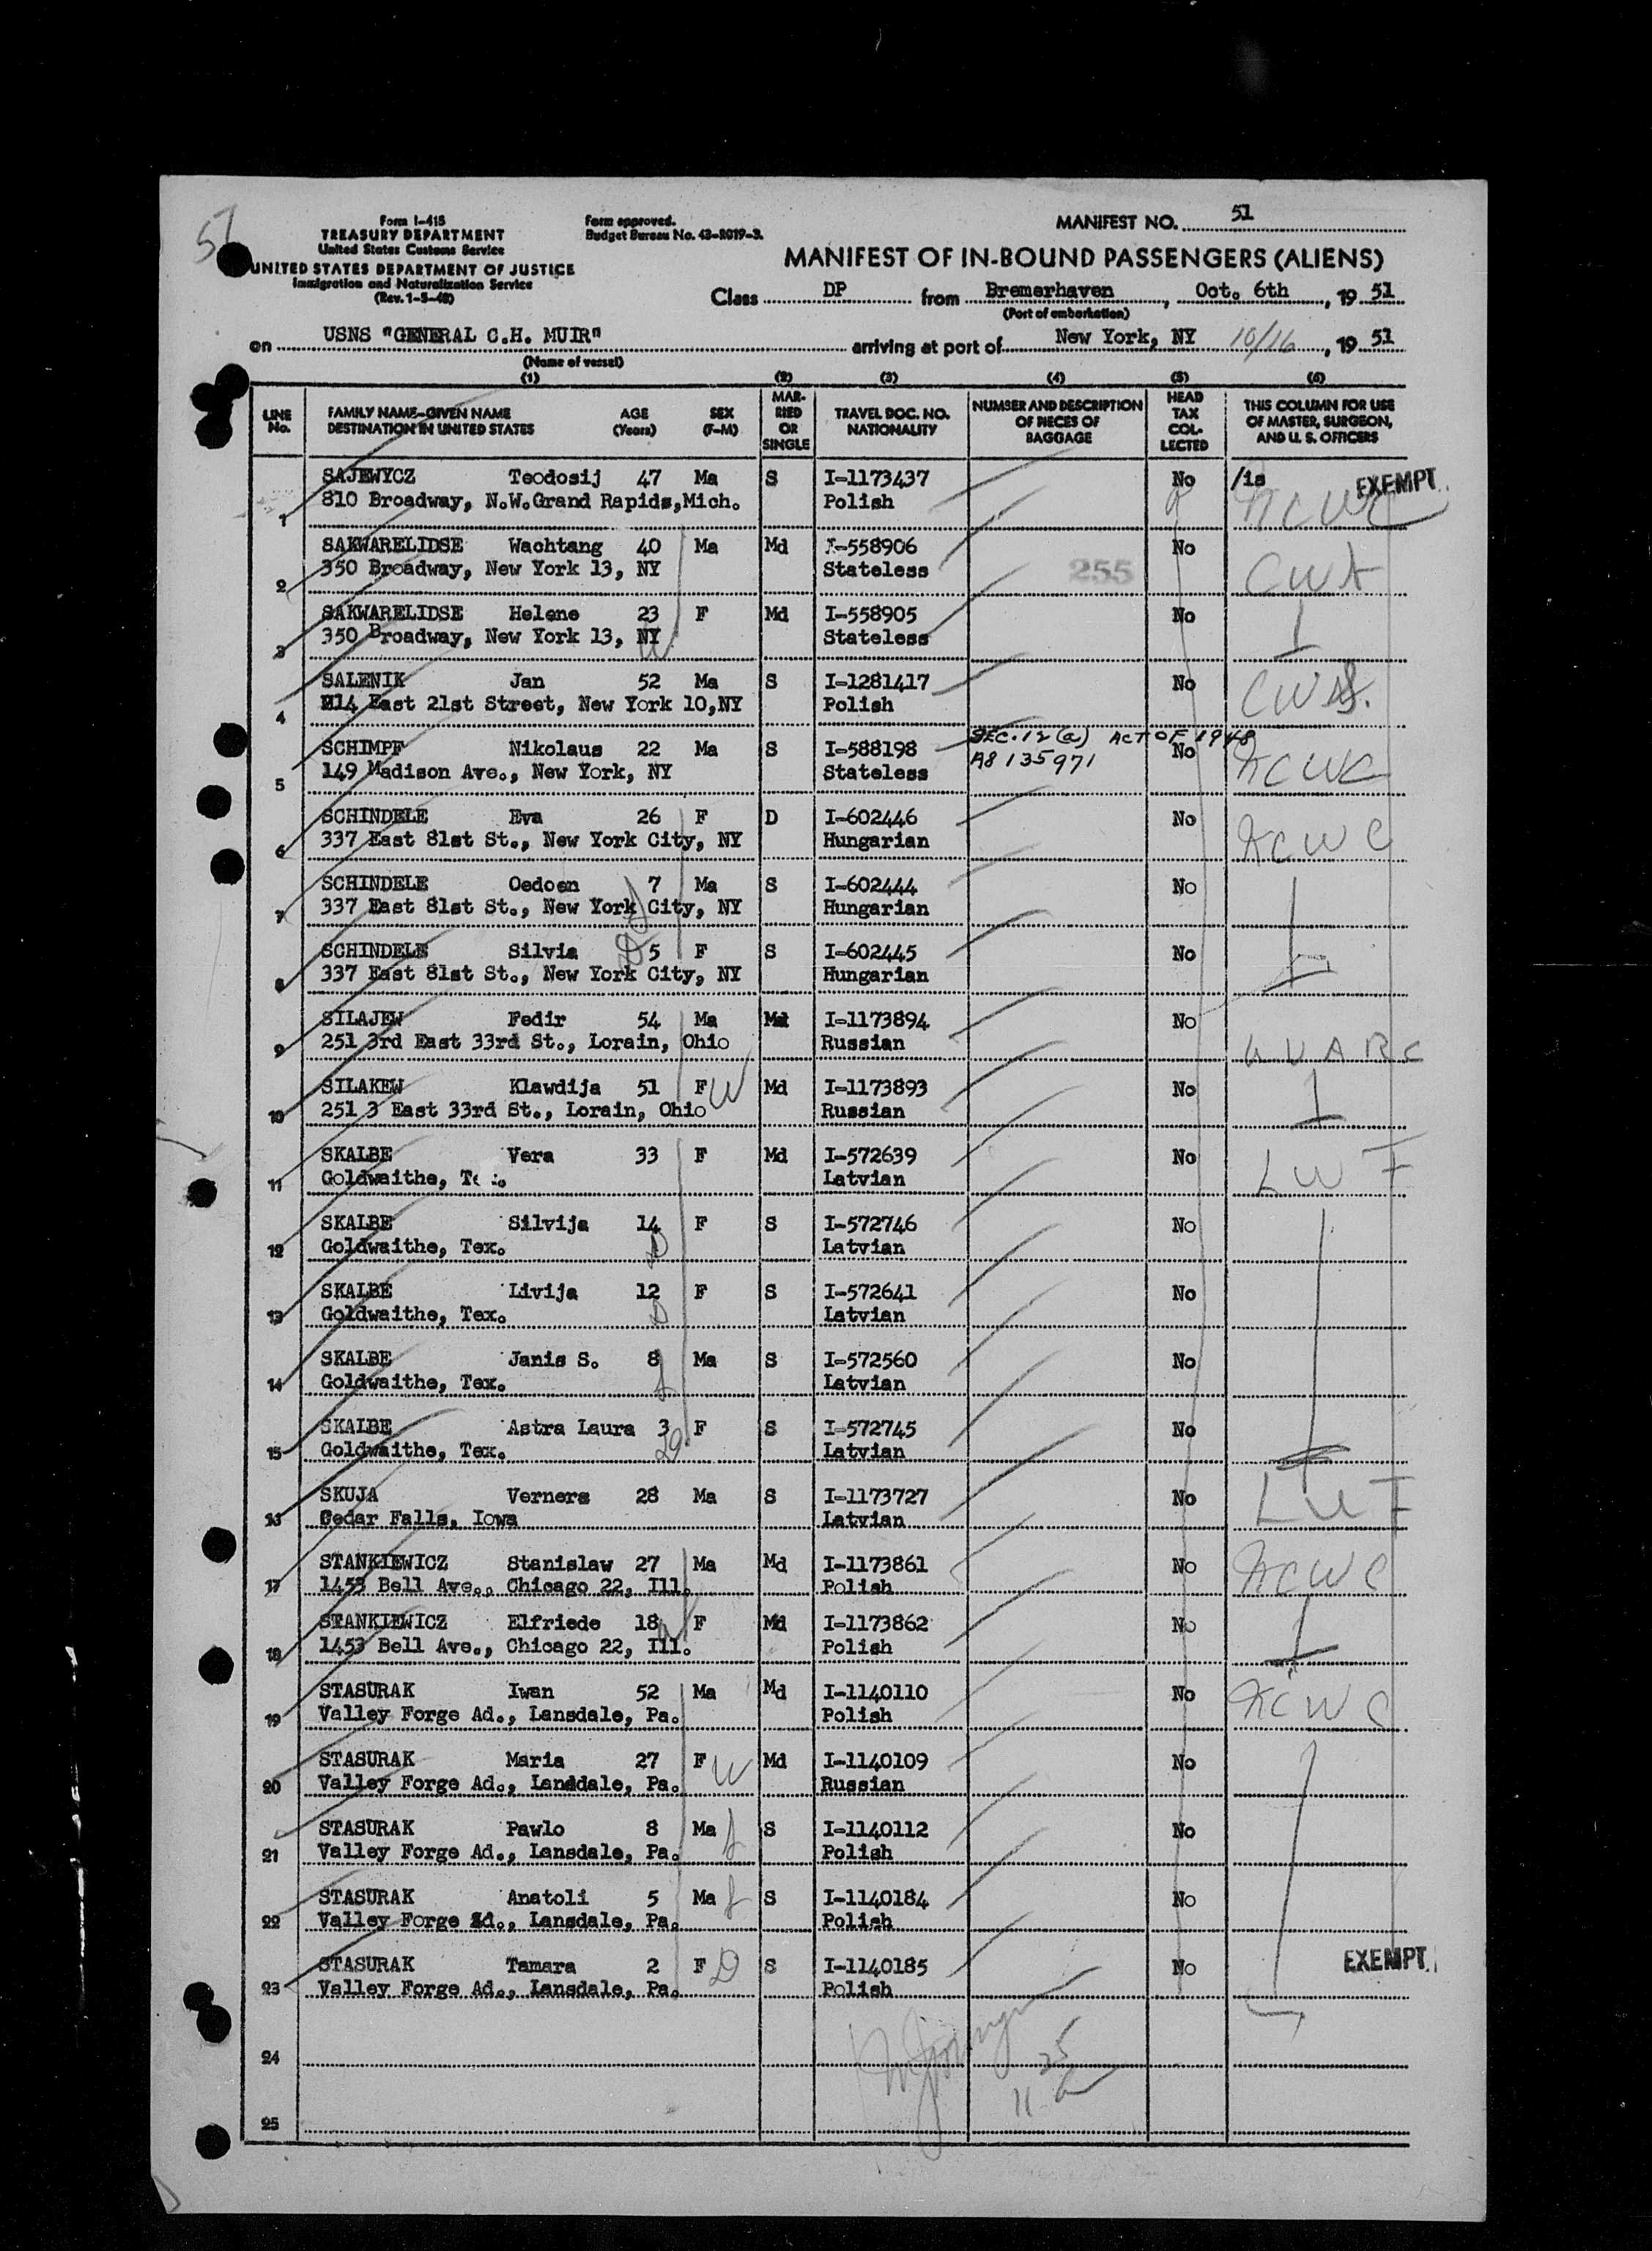 51
Form I-415
TREASURY DEPARTMENT
United States Customs Service
UNITED STATES DEPARTMENT OF JUSTICE
Immigration and Naturalization Service
(Rev. 1-5-48)
Form approved.
Budget Bureau No. 43-R019-3.
MANIFEST NO. 51
MANIFEST OF IN-BOUND PASSENGERS (ALIENS)
Class DP from Bremerhaven, Oct. 6th, 19 51
(Port of embarkation)
on USNS "GENERAL C.H. MUIR" arriving at port of New York, NY 10/16, 19 51
(Name of vessel)
(1) (2) (3) (4) (5) (6)
LINE No. FAMILY NAME-GIVEN NAME DESTINATION IN UNITED STATES AGE (Years) SEX (F-M) MARRIED OR SINGLE TRAVEL DOC. NO. NATIONALITY NUMBER AND DESCRIPTION OF PIECES OF BAGGAGE HEAD TAX COLLECTED THIS COLUMN FOR USE OF MASTER, SURGEON, AND U. S. OFFICERS
SAJEWYCZ Teodosij 47 Ma S I-1173437 No /1s EXEMPT
1 810 Broadway, N.W.Grand Rapids,Mich. Polish NCWC
SAKWARELIDSE Wachtang 40 Ma Md I-558906 No
2 350 Broadway, New York 13, NY Stateless 255 CWS
SAKWARELIDSE Helene 23 F Md I-558905 No
3 350 Broadway, New York 13, NY W Stateless
SALENIK Jan 52 Ma S I-1281417 No
4 214 East 21st Street, New York 10,NY Polish CWS.
SCHIMPF Nikolaus 22 Ma S I-588198 SEC. 12 (a) ACT OF 1948 No
5 149 Madison Ave., New York, NY Stateless A8 135971 NCWC
SCHINDELE Eva 26 F D I-602446 No
6 337 East 81st St., New York City, NY Hungarian NCWC
SCHINDELE Oedoen 7 Ma S I-602444 No
7 337 East 81st St., New York City, NY Hungarian
SCHINDELE Silvia 5 F S I-602445 No
8 337 East 81st St., New York City, NY Hungarian
SILAJEW Fedir 54 Ma Md I-1173894 No
9 251 3rd East 33rd St., Lorain, Ohio Russian
SILAKEW Klawdija 51 F W Md I-1173893 No
10 251 3 East 33rd St., Lorain, Ohio Russian
SKALBE Vera 33 F Md I-572639 No
11 Goldwaithe, Latvian LWF
SKALBE Silvija 14 F S I-572746 No
12 Goldwaithe, Tex. D Latvian
SKALBE Livija 12 F S I-572641 No
13 Goldwaithe, Tex. D Latvian
SKALBE Janis S. 8 Ma S I-572560 No
14 Goldwaithe, Tex. Latvian
SKALBE Astra Laura 3 F S I-572745 No
15 Goldwaithe, Tex. Latvian
SKUJA Verners 28 Ma S I-1173727 No LWF
Cedar Falls, Iowa Latvian
STANKIEWICZ Stanislaw 27 Ma Md I-1173861 No NCWC
17 1453 Bell Ave., Chicago 22, Ill. Polish
STANKIEWICZ Elfriede 18 F Md I-1173862 No
18 1453 Bell Ave., Chicago 22, Ill. Polish
STASURAK Iwan 52 Ma Md I-1140110 No NCWC
19 Valley Forge Ad., Lansdale, Pa. Polish
STASURAK Maria 27 F W Md I-1140109 No
20 Valley Forge Ad., Lansdale, Pa. Russian
STASURAK Pawlo 8 Ma S I-1140112 No
21 Valley Forge Ad., Lansdale, Pa. Polish
STASURAK Anatoli 5 Ma S I-1140184 No
22 Valley Forge Ad., Lansdale, Pa. Polish
STASURAK Tamara 2 F D S I-1140185 No EXEMPT
23 Valley Forge Ad., Lansdale, Pa. Polish
24
25